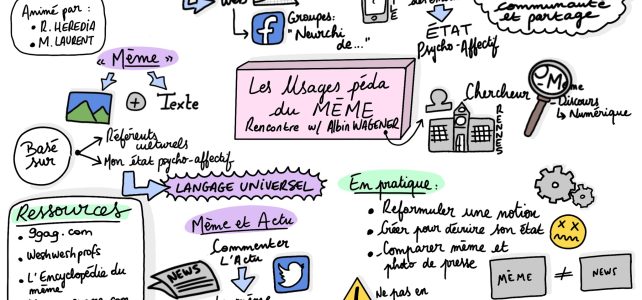 Animé par :
• R. HEREDIA
• M. LAURENT
Groupes:
"Neurchi
de..."
ÉTAT
Psycho-Affectif
communauté
et partage
« Même »
Texte
Les Usages péda
du MÊME
Rencontre w/ Albin WAGENER
Chercheur
RENNES
Discours
↳ Numérique
Basé
sur
Référents
culturels
Mon état psycho-affectif
LANGAGE UNIVERSEL
En pratique :
• Reformuler une notion
• Créer pour décrire son état
• Comparer même et
photo de presse
MÊME ≠ NEWS
Ne pas en
Même et Actu
Commenter
L'Actu
NEWS
Ressources
• 9gag.com
• Weshweshprofs
• L'Encyclopédie du
même